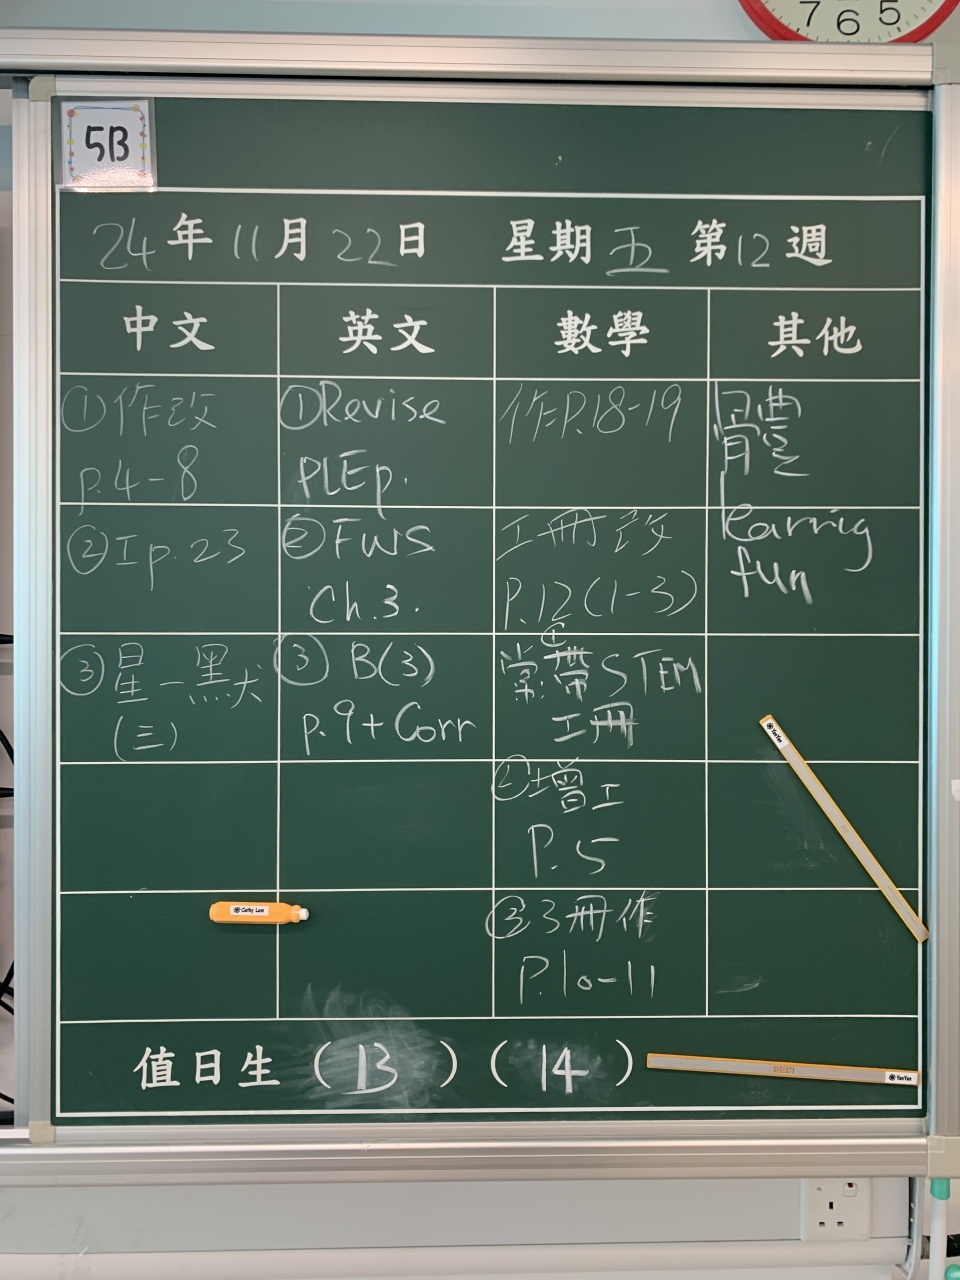 7 6 5
5B
24年11月22日 星期五 第12週
中文 英文 數學 其他
①作改
p.4-8
①Revise
PLEp.
作P.18-19
體
②工p.23
②FWS
Ch.3.
工冊改
P.12(1-3)
learning
fun
③星一默
(三)
③ B(3)
p.9+Corr
①
常:帶STEM
工冊
②增工
P.5
③3冊作
P.10-11
Cathy Lam
YanYan
值日生 (13) (14)
YanYan